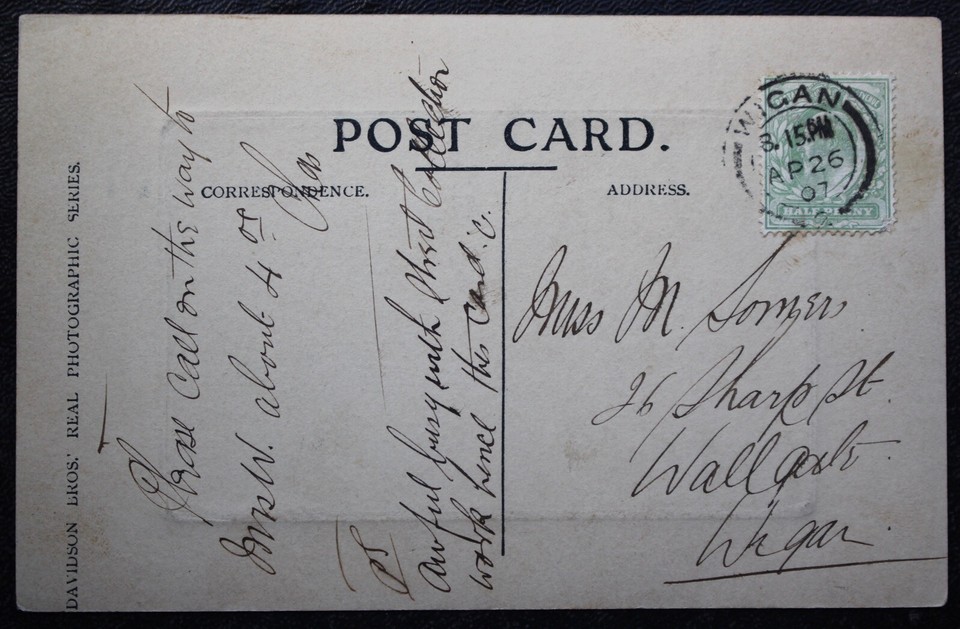 POST CARD.
CORRESPONDENCE.
ADDRESS.
DAVIDSON BROS.' REAL PHOTOGRAPHIC SERIES.
WIGAN
8.15.PM
AP 26
07
HALFPENNY
Please Call on the way to
Mrs W. about 4 or
Chas
PS
Awful busy with Street Collection
work hence this card. C.
Miss M. Somers
26 Sharp St.
Wallgate.
Wigan.